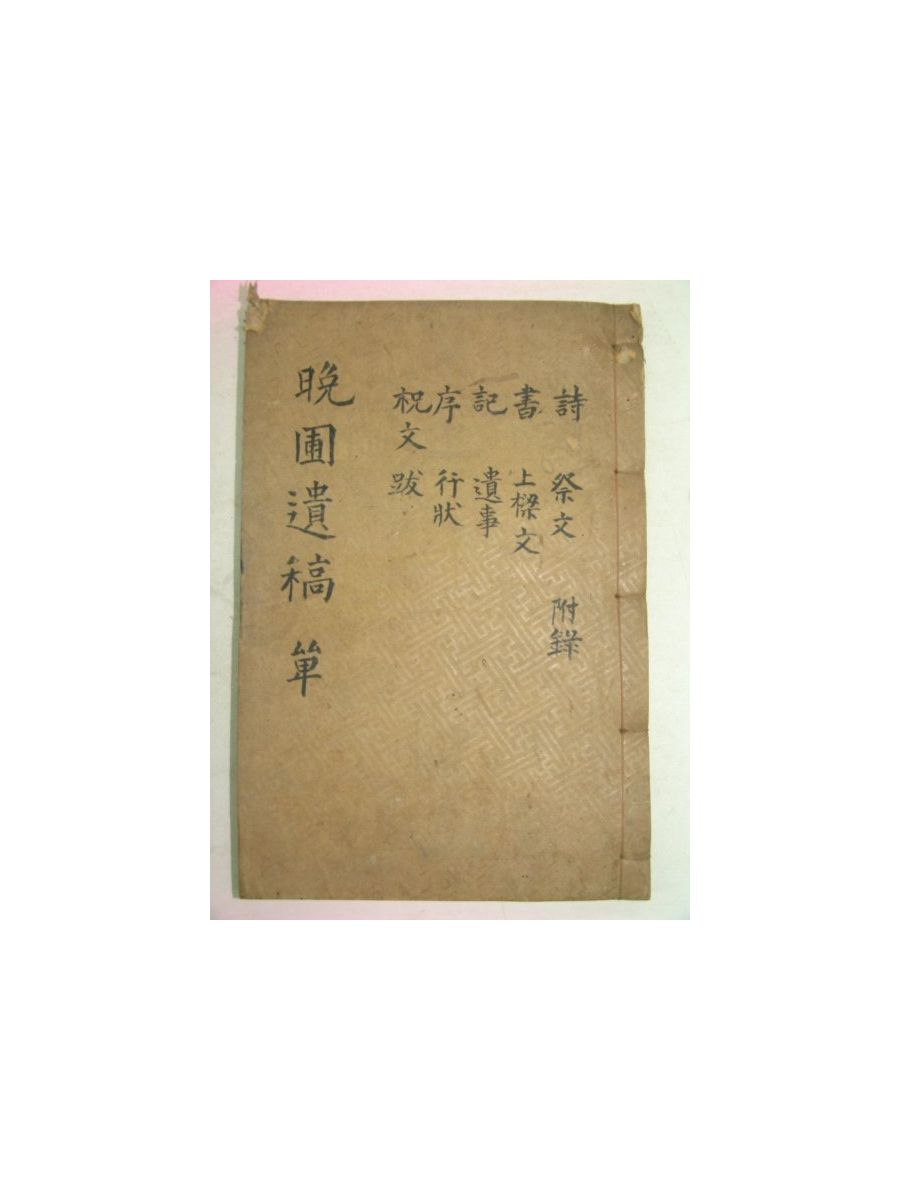 詩 祭文 附錄
書 上樑文
記 遺事
序 行狀
祝文 跋
晩圃遺稿 單